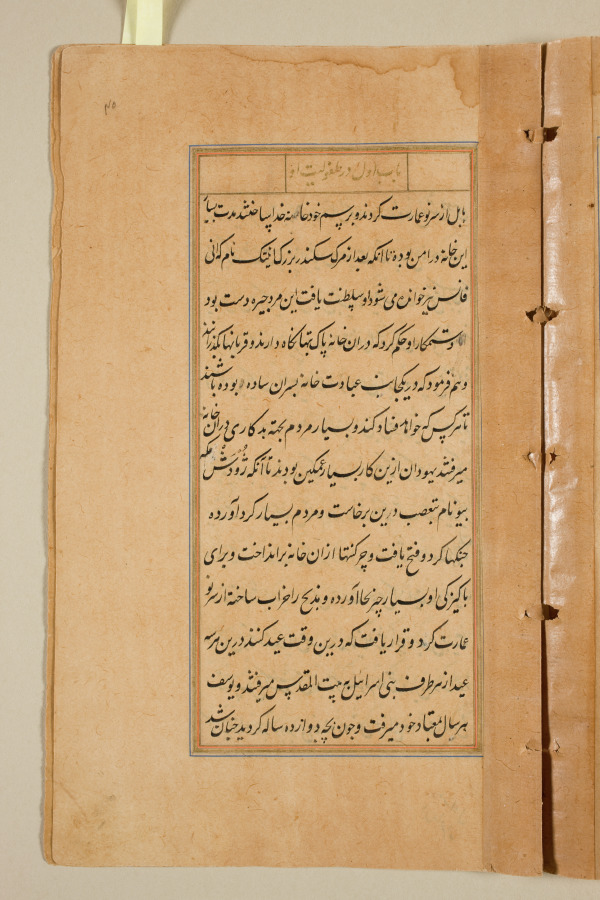 ۴۵
باب اول در طفولیت او
بابل از سر نو عمارت کردند و برسم خود خانه خدا پیاختند مدت بسیار
این خانه در امن بوده تا آنکه بعد از مرگ سکندر بزرگ انیتک نام که انی
فانس نیز خوانده می شود او سلطنت یافت این مرد چیره دست بود
و ستمکار او حکم کرد که در ان خانه پاک بتها نگاه دارند و قربانیها بگذرانند
و هم فرمود که در یکجانب عبادت خانه پسران ساده بوده باشند
تا هر کس که خواهد فساد کند و بسیار مردم بجهة بدکاری در ان خانه
میرفتند یهودان ازین کار بسیار غمگین بودند تا آنکه زودش مکه
بیو نام بتعصب دین برخاست و مردم بسیار گرد آورده
جنگها کرد و فتح یافت و چرکنها از ان خانه برانداخت و برای
پاکیزکی او بسیار چیز بجا آورده و مذبح را خراب ساخته از سر نو
عمارت کرد و قرار یافت که درین وقت عید کنند درین هر سه
عید از هر طرف بنی اسرائیل به بیت المقدس میرفتند و یوسف
هر سال بمعتاد خود میرفت و چون بچه دوازده ساله کردید چنان شد